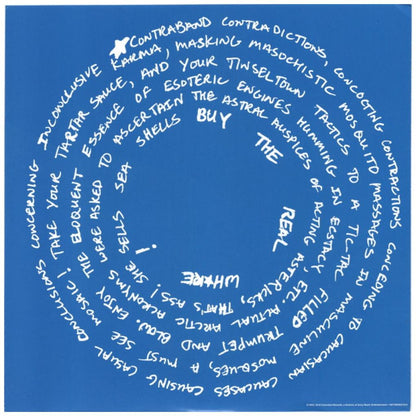 CONTRABAND CONTRADICTIONS, CONCOCTING CONTRACTIONS CONCEDING TO CAUCASIAN CAUCASES CAUSING CASUAL CONCLUSIONS CONCERNING INCONCLUSIVE
KARMA, MASKING MASOCHISTIC MOSQUITO MASSAGES IN MASCULINE MOSQUES A MUST SEE MOSAIC! TAKE YOUR TARTAR
SAUCE, AND YOUR TINSELTOWN TACTICS TO A TIC-TAC FILLED TRUMPET AND BLOW. ENJOY THE ELOQUENT
ESSENCE OF ESOTERIC ENGINES HUMMING IN ECSTACY, ETC. ACTUAL ARCTIC ACRONYMS WERE ASKED TO
ASCERTAIN THE ASTRAL AUSPICES OF ACTING ASTERIKS, THAT'S ASS! SHE SELLS SEA
SHELLS BUY THE REAL WHARE!